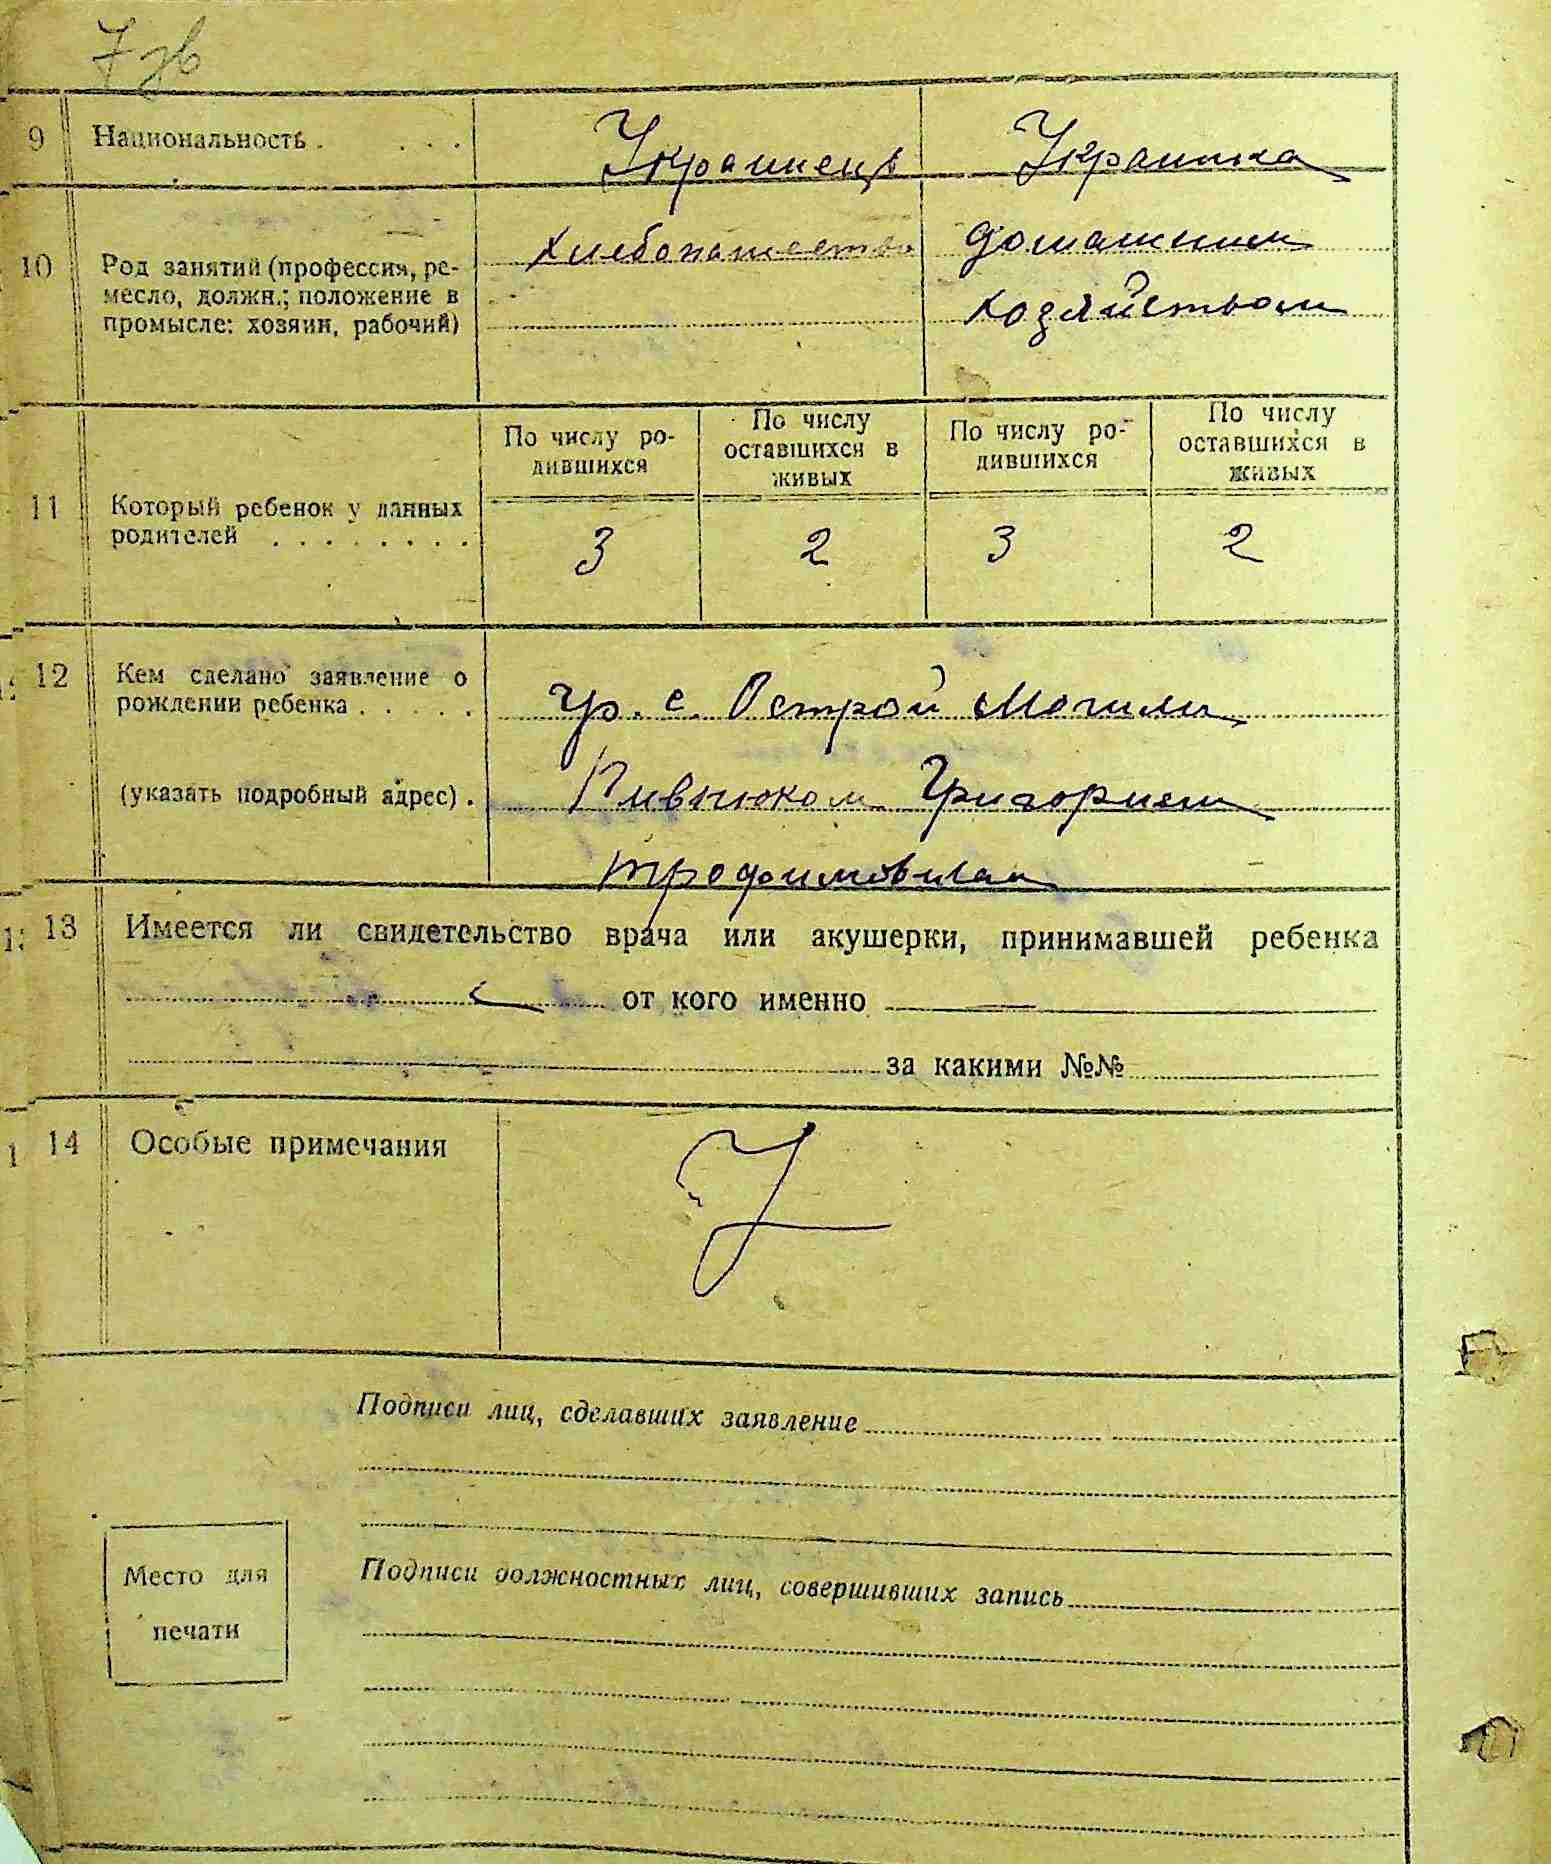 7 зв
9 Национальность . . . . Украинець Украинка
10 Род занятий (профессия, ре- хлебопашество домашним
месло, должн.; положение в хозяйством
промысле: хозяин, рабочий)
По числу ро- По числу По числу ро- По числу
дившихся оставшихся в дившихся оставшихся в
живых живых
11 Который ребенок у данных
родителей . . . . . . . . 3 2 3 2
12 Кем сделано заявление о
рождении ребенка . . . . . гр. с. Острой Могили
(указать подробный адрес) . Пивнюком Григорием
Трофимовичам
13 Имеется ли свидетельство врача или акушерки, принимавшей ребенка
от кого именно
за какими №№
14 Особые примечания
Подписи лиц, сделавших заявление
Место для
печати
Подписи должностных лиц, совершивших запись